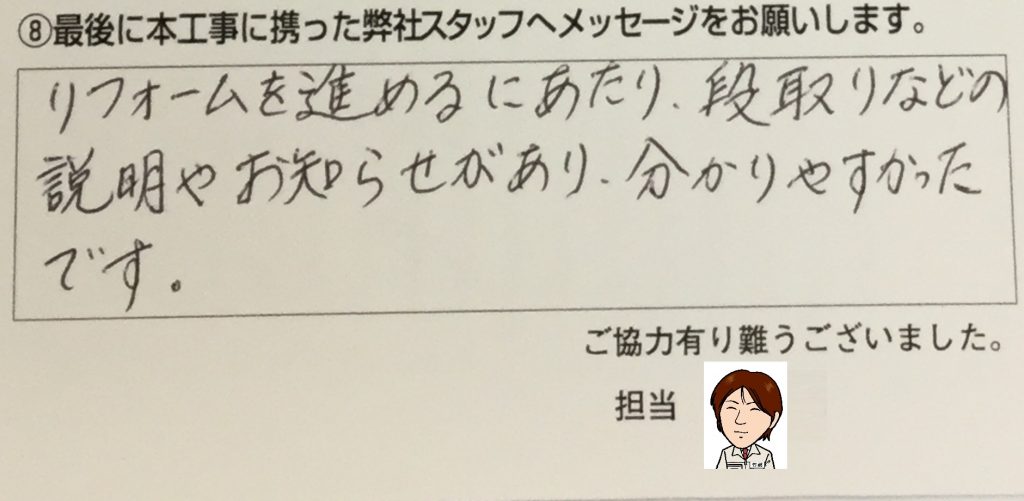 ⑧最後に本工事に携った弊社スタッフへメッセージをお願いします。
リフォームを進めるにあたり、段取りなどの
説明やお知らせがあり、分かりやすかった
です。
ご協力有り難うございました。
担当